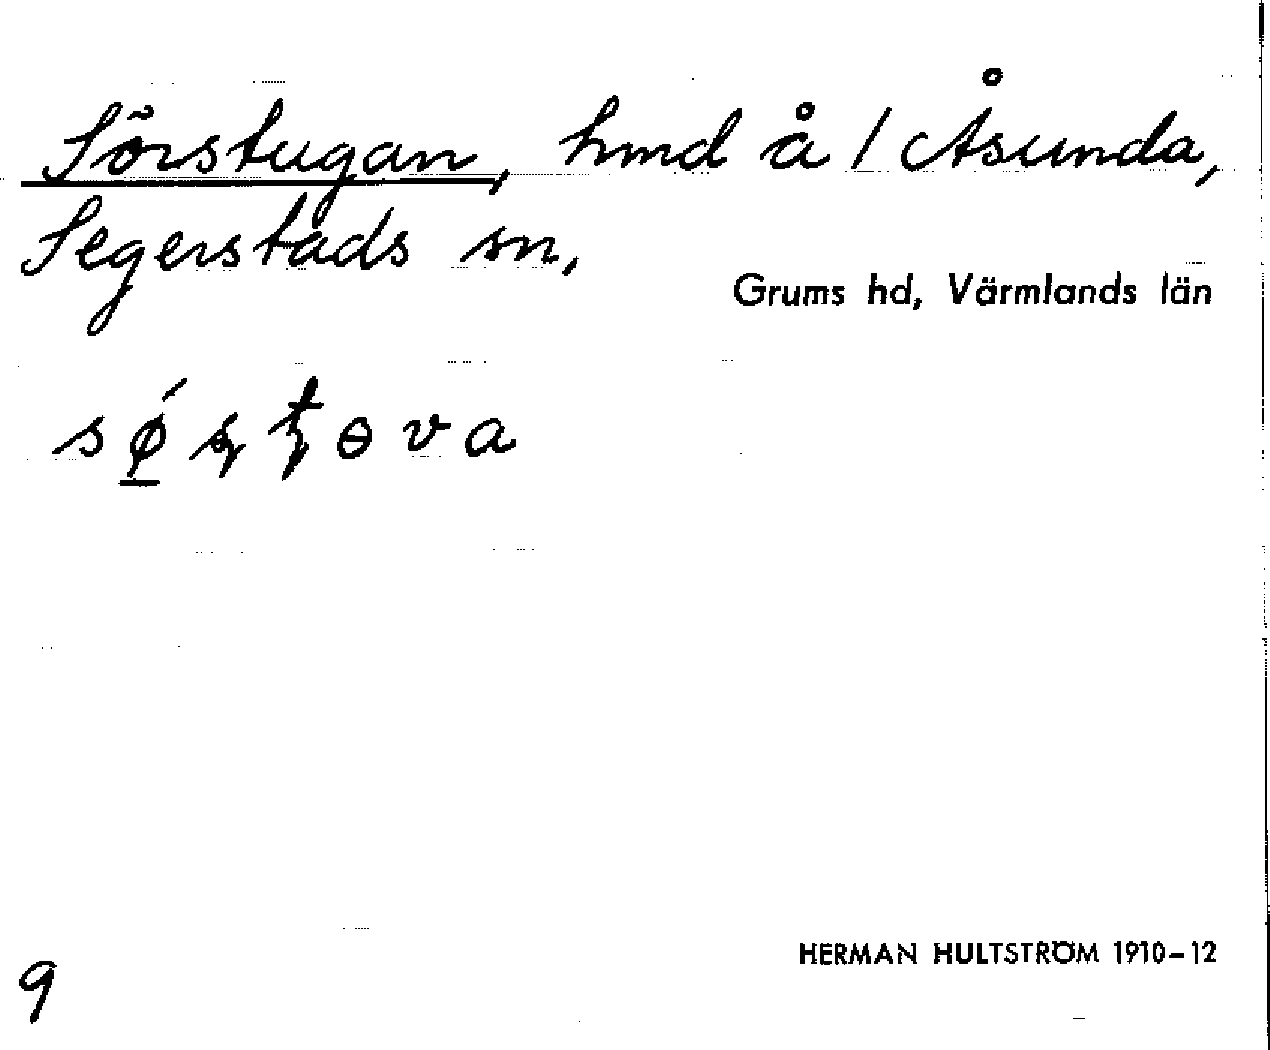 Sörstugan, hmd å / Åsunda,
Segerstads sn,
Grums hd, Värmlands län
HERMAN HULTSTRÖM 1910-12
9